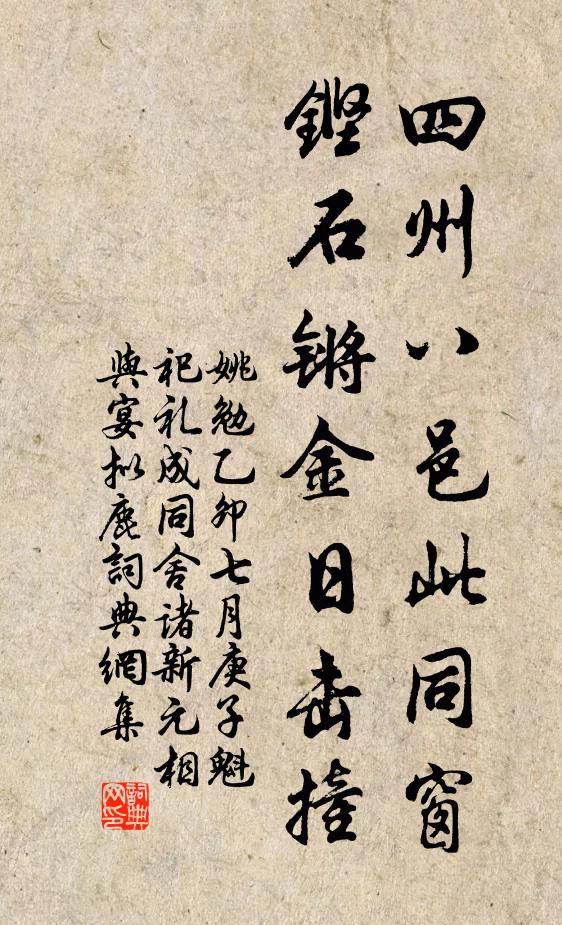 四州八邑此同窗
鏗石锵金日击撞
姚勉乙卯七月庚子魁
祀礼成同舍诸新元相
與宴拟鹿詞典網集
詞典
网印